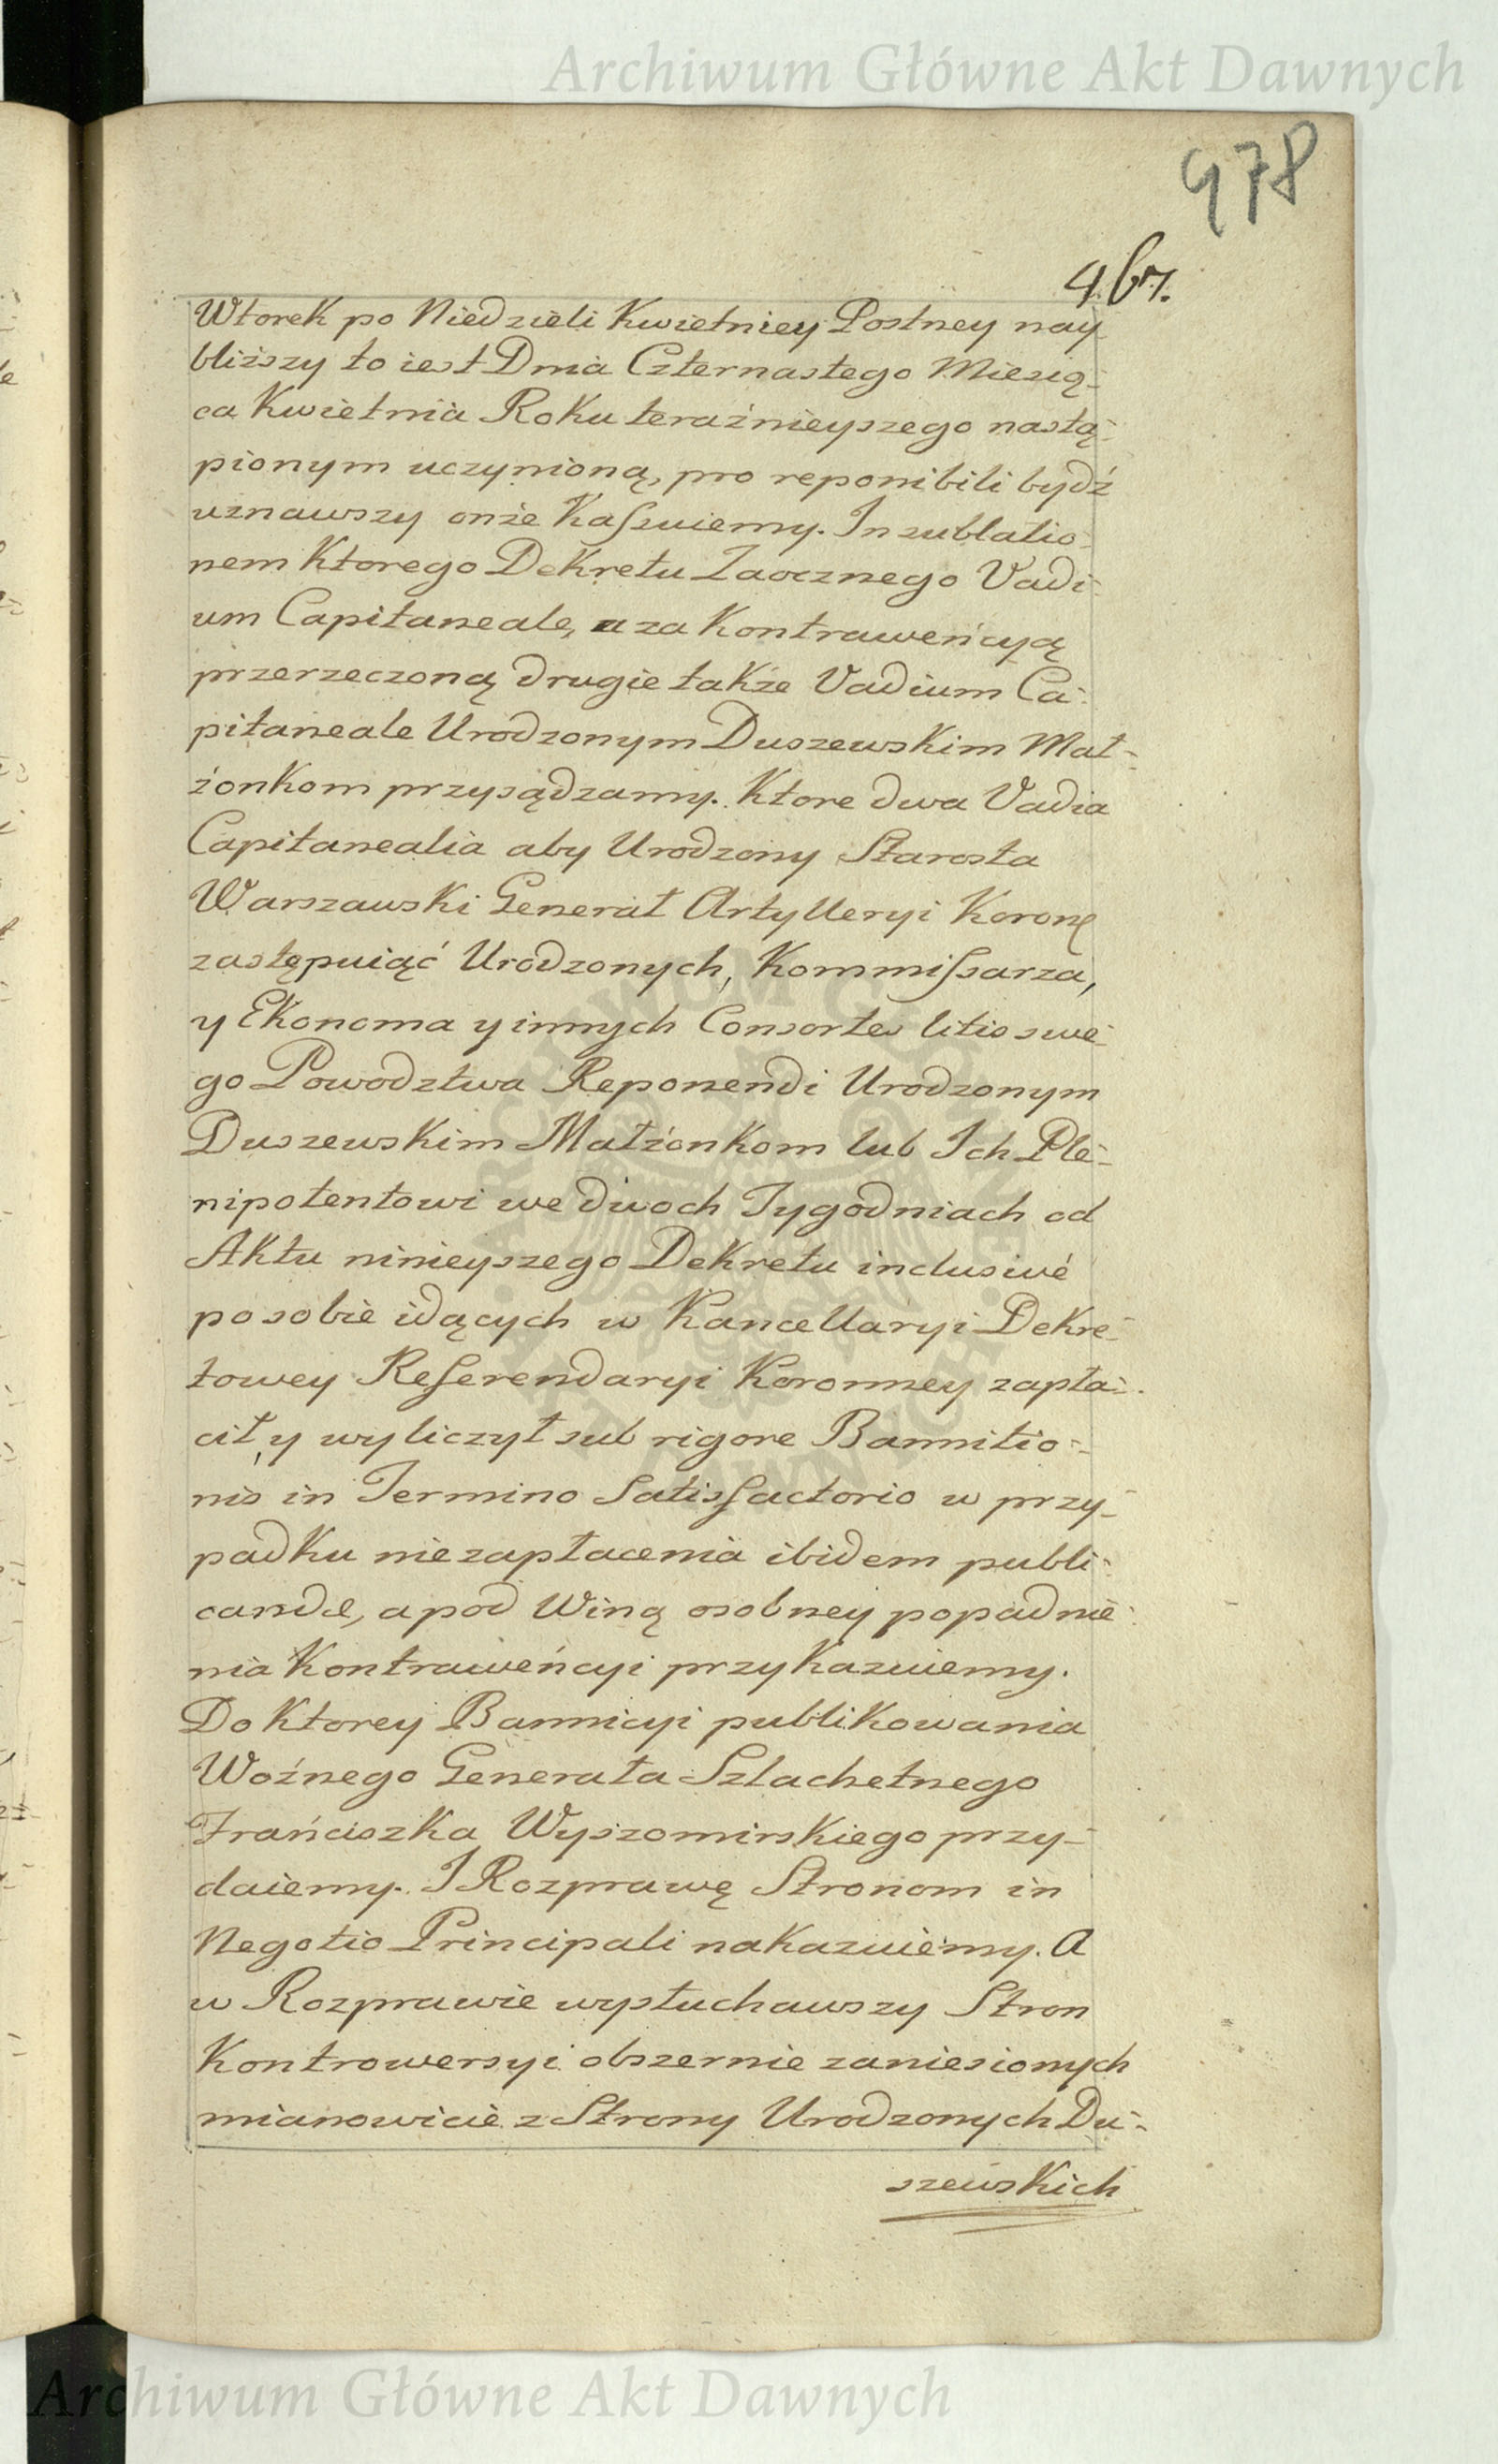 Archiwum Główne Akt Dawnych
978
467.
Wtorek po Niedzieli Kwietniey Postney nay
bliższy to iest Dnia Czternastego Miesią-
ca Kwietnia Roku teraźnieyszego nastą-
pionym uczynioną, pro reponibili bydź
uznawszy onże Kassuiemy. In sublatio-
nem Ktorego Dekretu Zaocznego Vadi-
um Capitaneale, a za Kontrawencyą
przerzeczoną drugie także Vadium Ca-
pitaneale Urodzonym Duszewskim Mał-
żonkom przysądzamy. Ktore dwa Vadia
Capitanealia aby Urodzony Starosta
Warszawski Generał Artylleryi Koronę
zastępuiąć Urodzonych, Kommissarza,
y Ekonoma y innych Consortes litis swe-
go Powodztwa Reponendi Urodzonym
Duszewskim Małżonkom lub Ich Ple-
nipotentowi we dwoch Tygodniach od
Aktu ninieyszego Dekretu inclusivé
po sobie idących w Kancellaryi Dekre-
towey Referendaryi Koronney zapła-
cił, y wyliczył sub rigore Bannitio-
nis in Termino Satisfactorio w przy-
padku niezapłacenia ibidem publi-
candæ, a pod Winą osobney popadnie-
nia Kontrawencyi przykazuiemy.
Do Ktorey Bannicyi publikowania
Woźnego Generała Szlachetnego
Franciszka Wyszomirskiego przy-
daiemy. I Rozprawę Stronom in
Negotio Principali nakazuiemy. A
w Rozprawie wysłuchawszy Stron
Kontrowersyi obszernie zaniesionych
mianowicie z Strony Urodzonych Du-
szewskich
Archiwum Główne Akt Dawnych